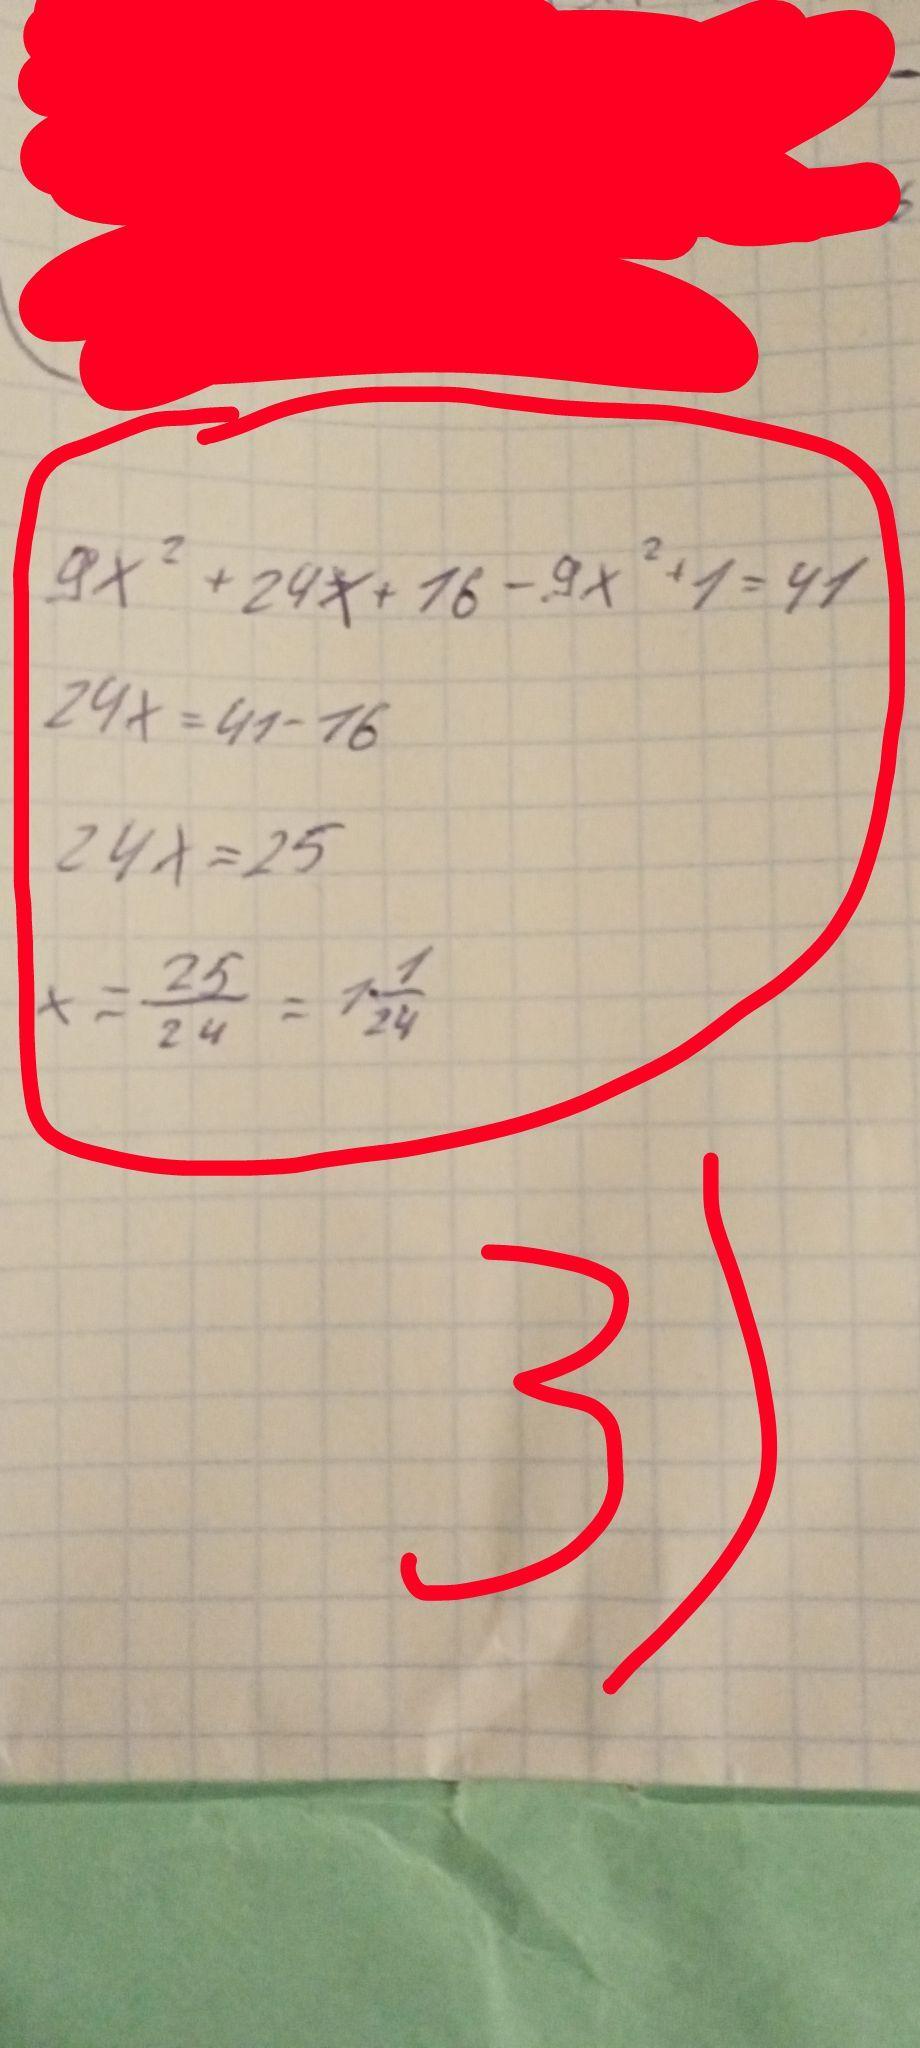 9x² + 24x + 16 - 9x² + 1 = 41
24x = 41 - 16
24x = 25
x = 25/24 = 1 1/24
3)